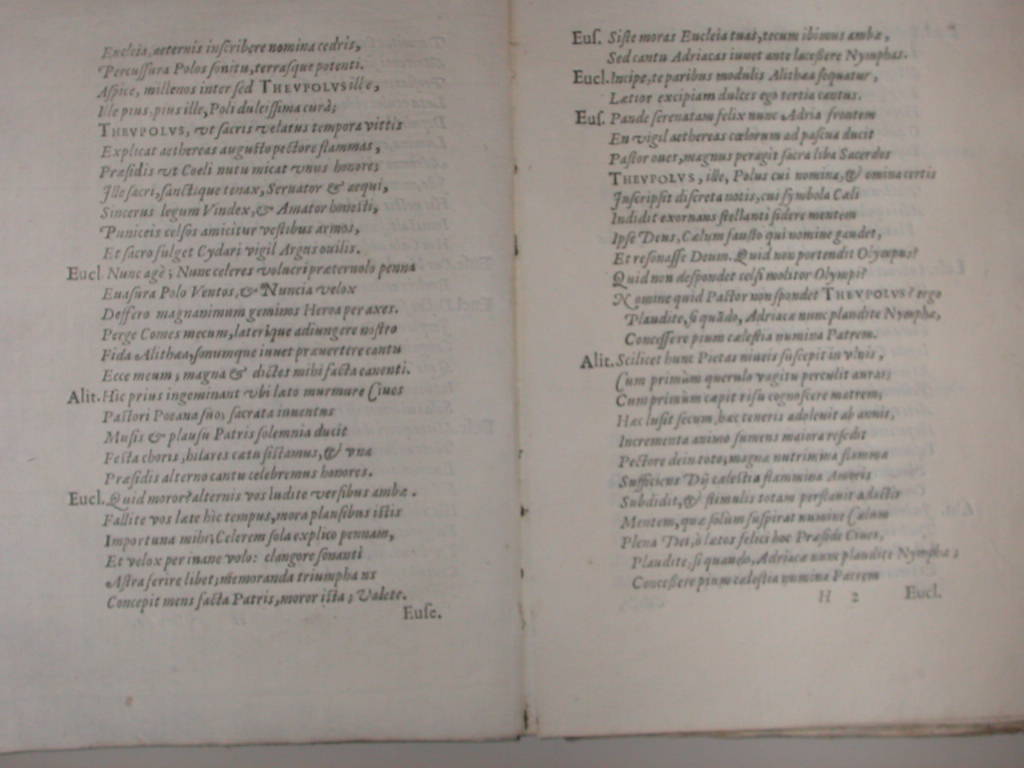 Eucleia, aeternis inscribere nomina cedris,
Percussura Polos sonitu, terrasque potenti.
Aspice, millenos inter sed THEVPOLVS ille,
Ille pius, pius ille, Poli dulcissima cura;
THEVPOLVS, vt sacris velatus tempora vittis
Explicat aethereas augusto pectore flammas,
Præsidis vt Coeli nutu micat vnus honores
Ille sacri, sanctique tenax, Seruator & aequi,
Sincerus legum Vindex, & Amator honesti,
Puniceis celsos amicitur vestibus armos,
Et sacro fulget Cydari vigil Argus ouilis.
Eucl. Nunc agè; Nunc celeres volucri præteruolo penna
Euasura Polo Ventos, & Nuncia velox
Deffero magnanimum geminos Heroa per axes.
Perge Comes mecum, laterique adiungere nostro
Fida Alithæa, sonumque iuuet præuertere cantu
Ecce meum; magna & dictes mihi facta canenti.
Alit. Hic prius ingeminant vbi lato murmure Ciues
Pastori Pæana suo; sacrata iuuentus
Musis & plausu Patris solemnia ducit
Festa choris, hilares cætu sistamus, & vna
Præsidis alterno cantu celebremus honores.
Eucl. Quid moror? alternis vos ludite versibus ambæ.
Fallite vos læte hic tempus, mora plausibus istis
Importuna mihi; Celerem sola explico pennam,
Et velox per inane volo: clangore sonanti
Astra ferire libet; memoranda triumphans
Concepit mens facta Patris, moror ista; Valete.
Euse.
Eus. Siste moras Eucleia tuas, tecum ibimus ambæ,
Sed cantu Adriacas iuuet ante lacessere Nymphas.
Eucl. Incipe, te paribus modulis Alithæa sequatur,
Lætior excipiam dulces ego tertia cantus.
Eus. Pande serenatam felix nunc Adria frontem
En vigil aethereas cœlorum ad pascua ducit
Pastor oues, magnus peragit sacra liba Sacerdos
THEVPOLVS, ille, Polus cui nomina, & omina certis
Inscripsit discreta notis, cui symbola Cæli
Indidit exornans stellanti sidere mentem
Ipse Deus, Cælum fausto qui nomine gaudet,
Et resonasse Deum. Quid non portendit Olympus?
Quid non despondet celsi molitor Olympi?
Nomine quid Pastor non spondet THEVPOLVS? ergo
Plaudite, si quãdo, Adriacæ nunc plandite Nymphæ,
Concessere pium cælestia numina Patrem.
Alit. Scilicet hunc Pietas niueis suscepit in vlnis,
Cum primùm querulo vagitu perculit auras;
Cum primùm capit risu cognoscere matrem;
Hac lusit secum, hac teneris adoleuit ab annis,
Incrementa animo sumens maiora resedit
Pectore dein toto; magna nutrimina flamma
Sufficicus Dij cælestia flammina Amoris
Subdidit, & stimulis totam perstauit adactis
Mentem, quæ solùm suspirat numine Cælum
Plena Dei, ò lætos felici hoc Præside Ciues,
Plaudite, si quando, Adriacæ nunc plaudite Nymphæ;
Concessere pium cælestia numina Patrem
H 2 Eucl.